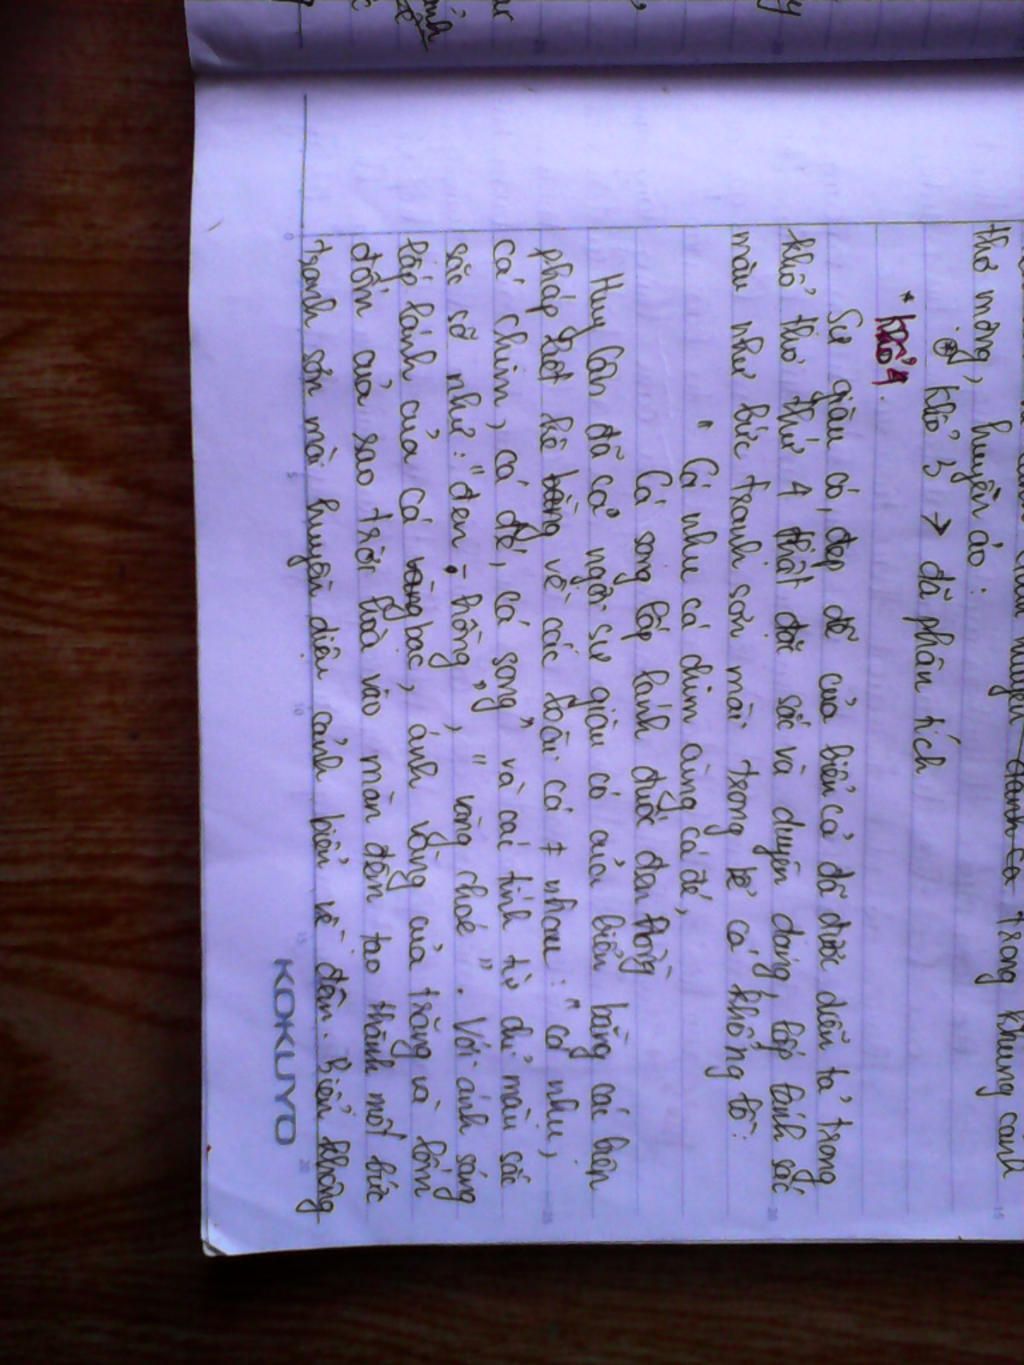 Trong khung cảnh
thơ mộng, huyền ảo :
khổ 3 → đã phân tích
* Khổ 4.
Sự giàu có, đẹp đẽ của biển cả đã được diễn tả trong
khổ thơ thứ 4 thật đặc sắc và duyên dáng, lấp lánh sắc
màu như bức tranh sơn mài trong bể cá khổng lồ :
" Cá nhụ cá chim cùng cá đé,
Cá song lấp lánh đuốc đen hồng
Huy Cận đã ca ngợi sự giàu có của biển bằng các biện
pháp liệt kê bằng về các loài cá ≠ nhau : " cá nhụ,
cá chim, cá đé, cá song" và các tính từ chỉ màu sắc
sặc sỡ như : " đen - hồng ", " vàng choé ". Với ánh sáng
lấp lánh của cá vàng bạc, ánh vàng của trăng và lốm
đốm của sao trời hoà vào màn đêm tạo thành một bức
tranh sơn mài huyền diệu cảnh biển về đêm. Biển không
KOKUYO